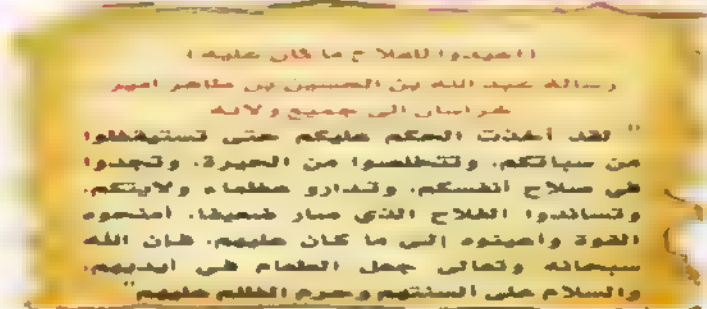 (اعيدوا للفلاح ما كان عليه)
رسالة عبد الله بن الحسين بن طاهر امير
خراسان الى جميع ولاته
" لقد أخذت الحكم عليكم حتى تستيقظوا
من سباتكم. وتتخلصوا من الحيرة. وتجدوا
في صلاح أنفسكم. وتدارو ولايتكم.
وتساندوا الفلاح الذي صار ضعيفا. أمنحوه
القوة وأعينوه إلى ما كان عليهم. فان الله
سبحانه وتعالى جعل الطعام في أيديهم.
والسلام على السنتهم وحرم الظلم عليهم"